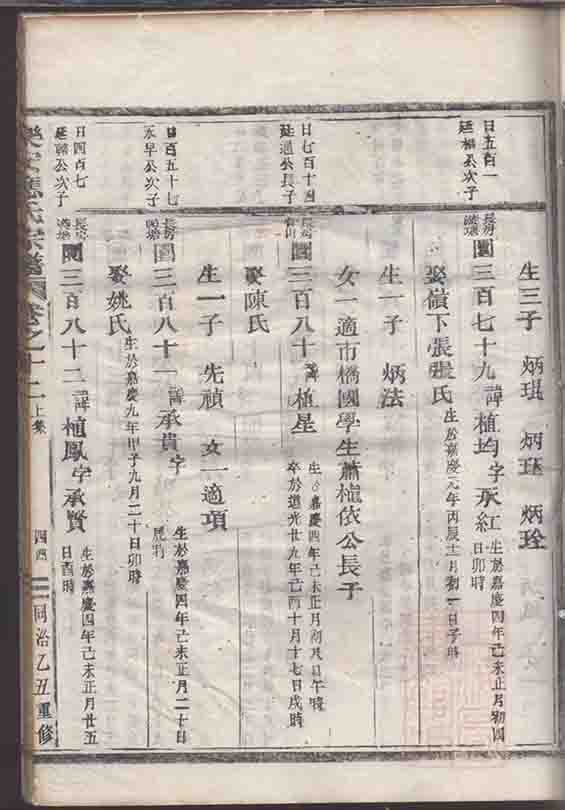 生三子 炳琨 炳珏 炳銓
日五百一
延福公次子
長房
圓三百七十九 諱植均 字承紅
生於嘉慶四年己未正月初四
日卯時
娶嶺下張張氏
生於嘉慶元年丙辰十一月初一日子時
生一子 炳法
女一適市橋國學生蕭植依公長子
日七百十四
延通公長子
長房
圓三百八十 諱植星
生嘉慶四年己未正月初八日午時
卒於道光廿九年己酉十月十七日戌時
娶陳氏
生一子 先禎 女一適項
日百五十七
永早公次子
長房
圓三百八十一 諱承貴字
生於嘉慶四年己未正月二十日
娶姚氏
生於嘉慶九年甲子九月二十日卯時
日四百七
延福公次子
長房
圓三百八十二 諱植鳳字承賢
生於嘉慶四年己未正月廿五
日酉時
氏宗譜 卷之十二 上集
四四
同治乙丑重修